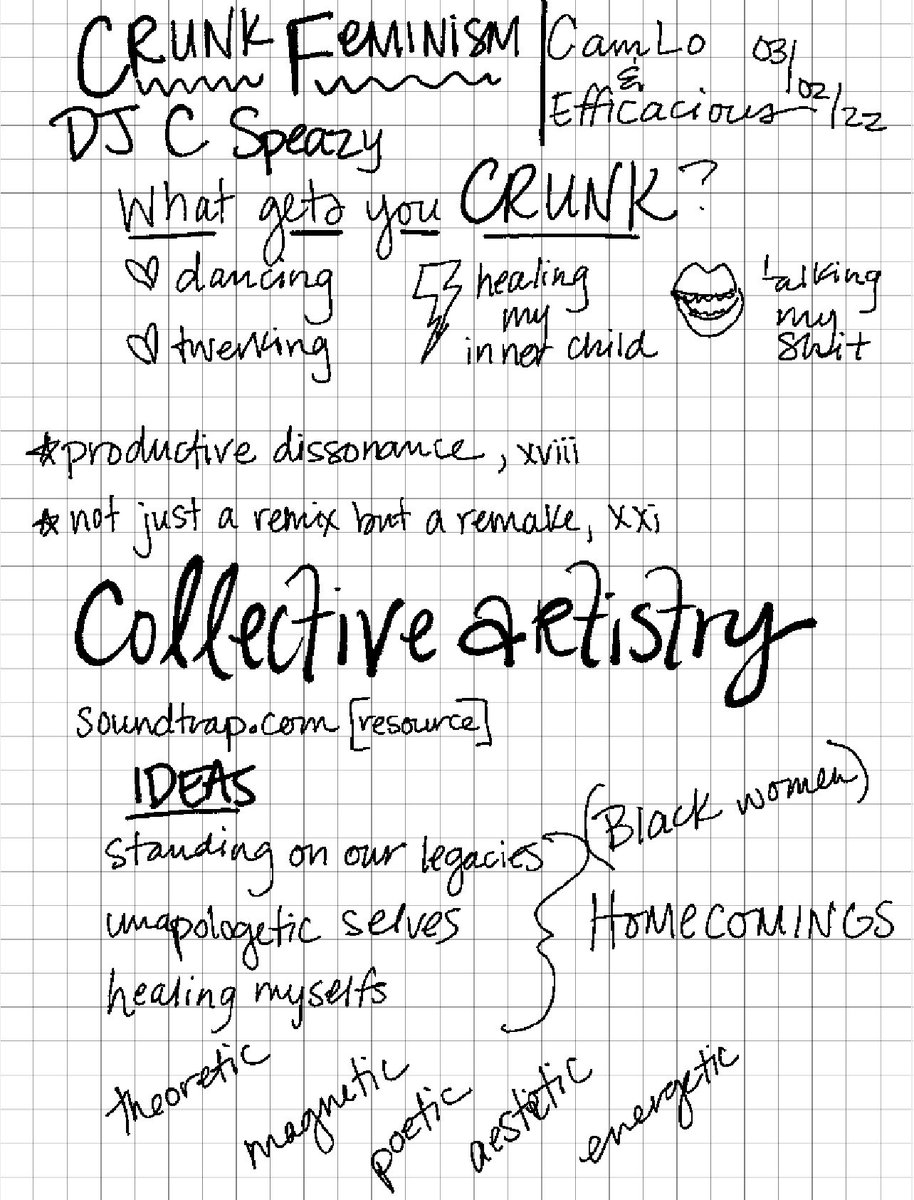 CRUNK FEMINISM
CamLo
&
Efficacious
03/02/22
DJ C Speazy
What gets you CRUNK?
dancing
twerking
healing
my
inner child
talking
my
shit
*productive dissonance, xviii
*not just a remix but a remake, xxi
Collective artistry
soundtrap.com [resource]
IDEAS
standing on our legacies
unapologetic selves
healing myselfs
(Black women)
HOMECOMINGS
theoretic
magnetic
poetic
aestetic
energetic